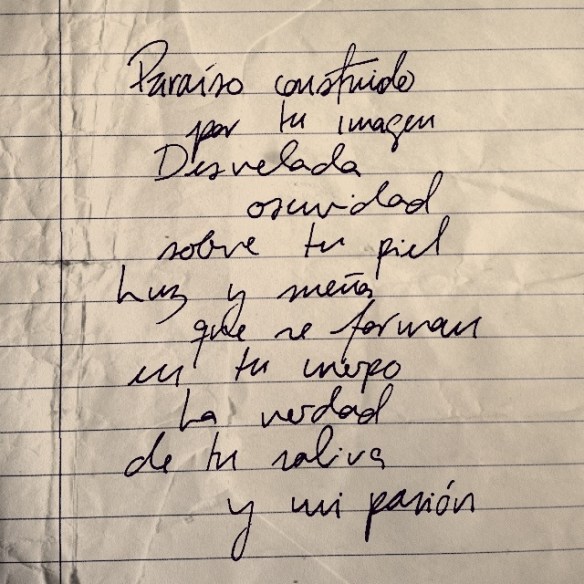 Paraíso construido
por tu imagen
Desvelada
oscuridad
sobre tu piel
Luz y sueños
que se forman
en tu cuerpo
La verdad
de tu saliva
y mi pasión